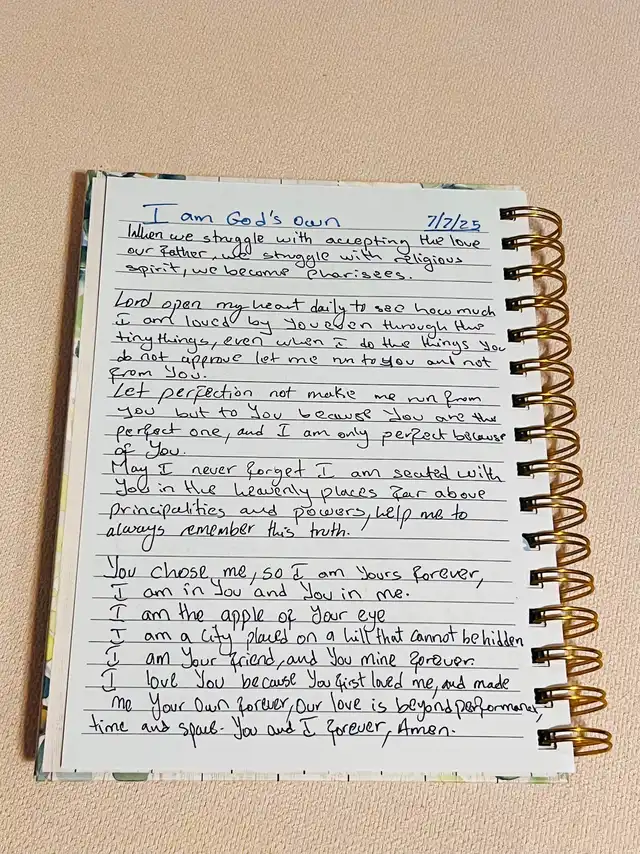 I am God's own 7/7/25
When we struggle with accepting the love
our Father, we struggle with religious
spirit, we become Pharisees.
Lord open my heart daily to see how much
I am loved by You even through the
tiny things, even when I do the things You
do not approve let me run to You and not
from You.
Let perfection not make me run from
You but to You because You are the
perfect one, and I am only perfect because
of You.
May I never forget I am seated with
You in the heavenly places far above
principalities and powers, help me to
always remember this truth.
You chose me, so I am Yours forever,
I am in You and You in me.
I am the apple of Your eye
I am a city placed on a hill that cannot be hidden
I am Your friend, and You mine forever.
I love You because You first loved me, and made
me Your Own forever, Our love is beyond performance,
time and space. You and I forever, Amen.